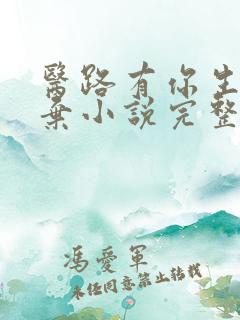 醫路有你生
棄小說完整
馮愛軍
未任同意禁止轉載